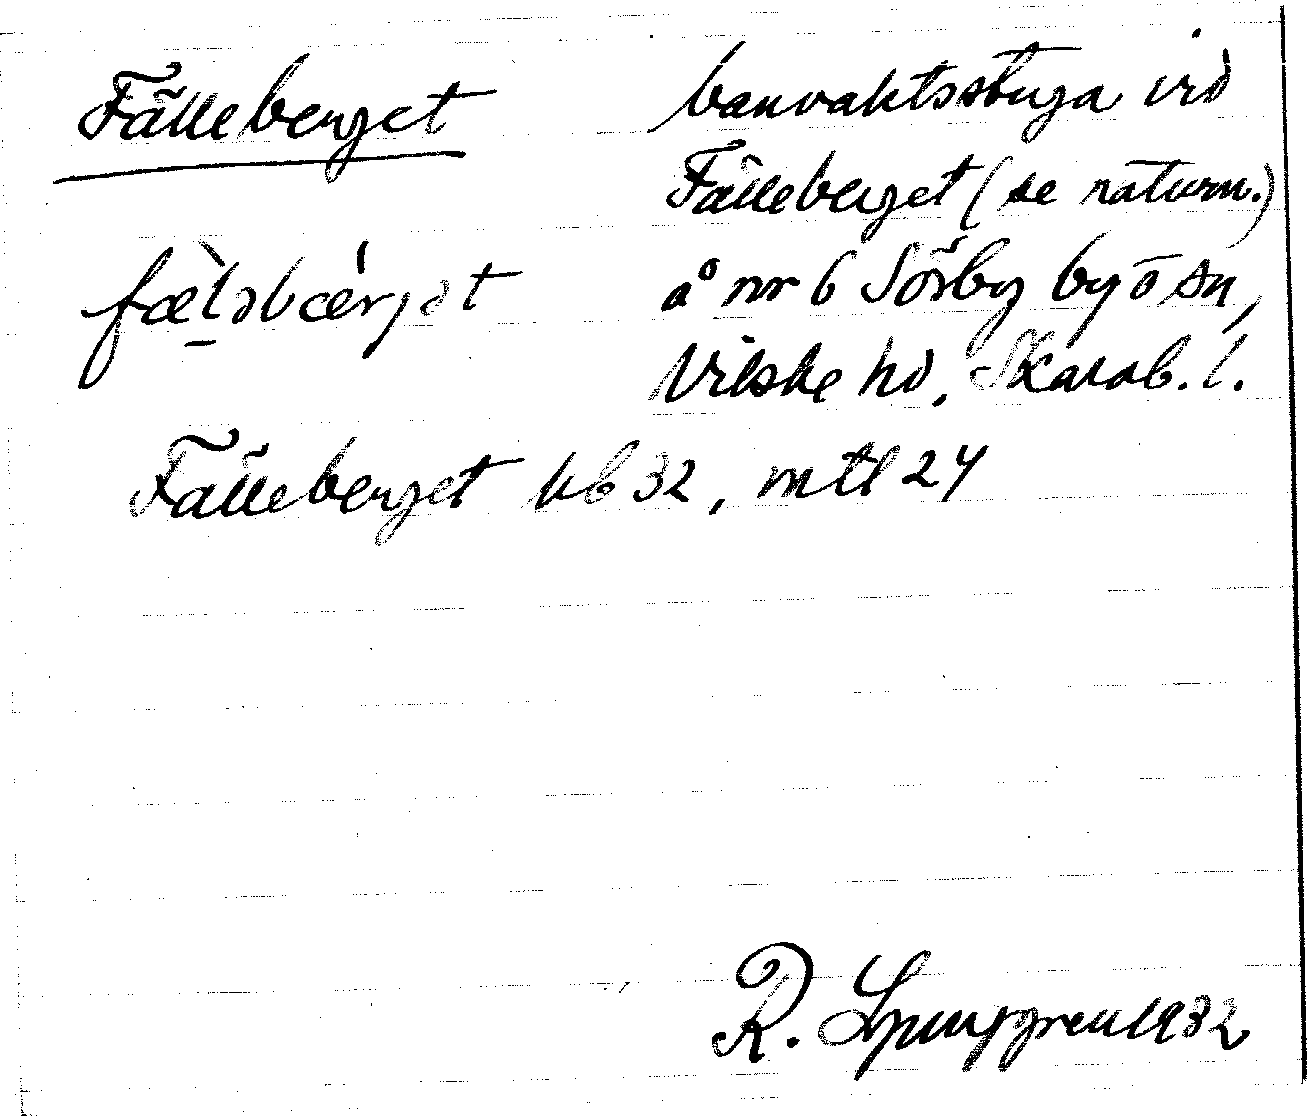 Fälleberget
banvaktsstuga vid
Fälleberget (se naturn.)
å nr 6 Sörby by o sn,
Vilske hd, Skarab. l.
fæ̀ləbǽrjət
Fälleberget kb 32, mtl 24
R. Ljunggren 1932